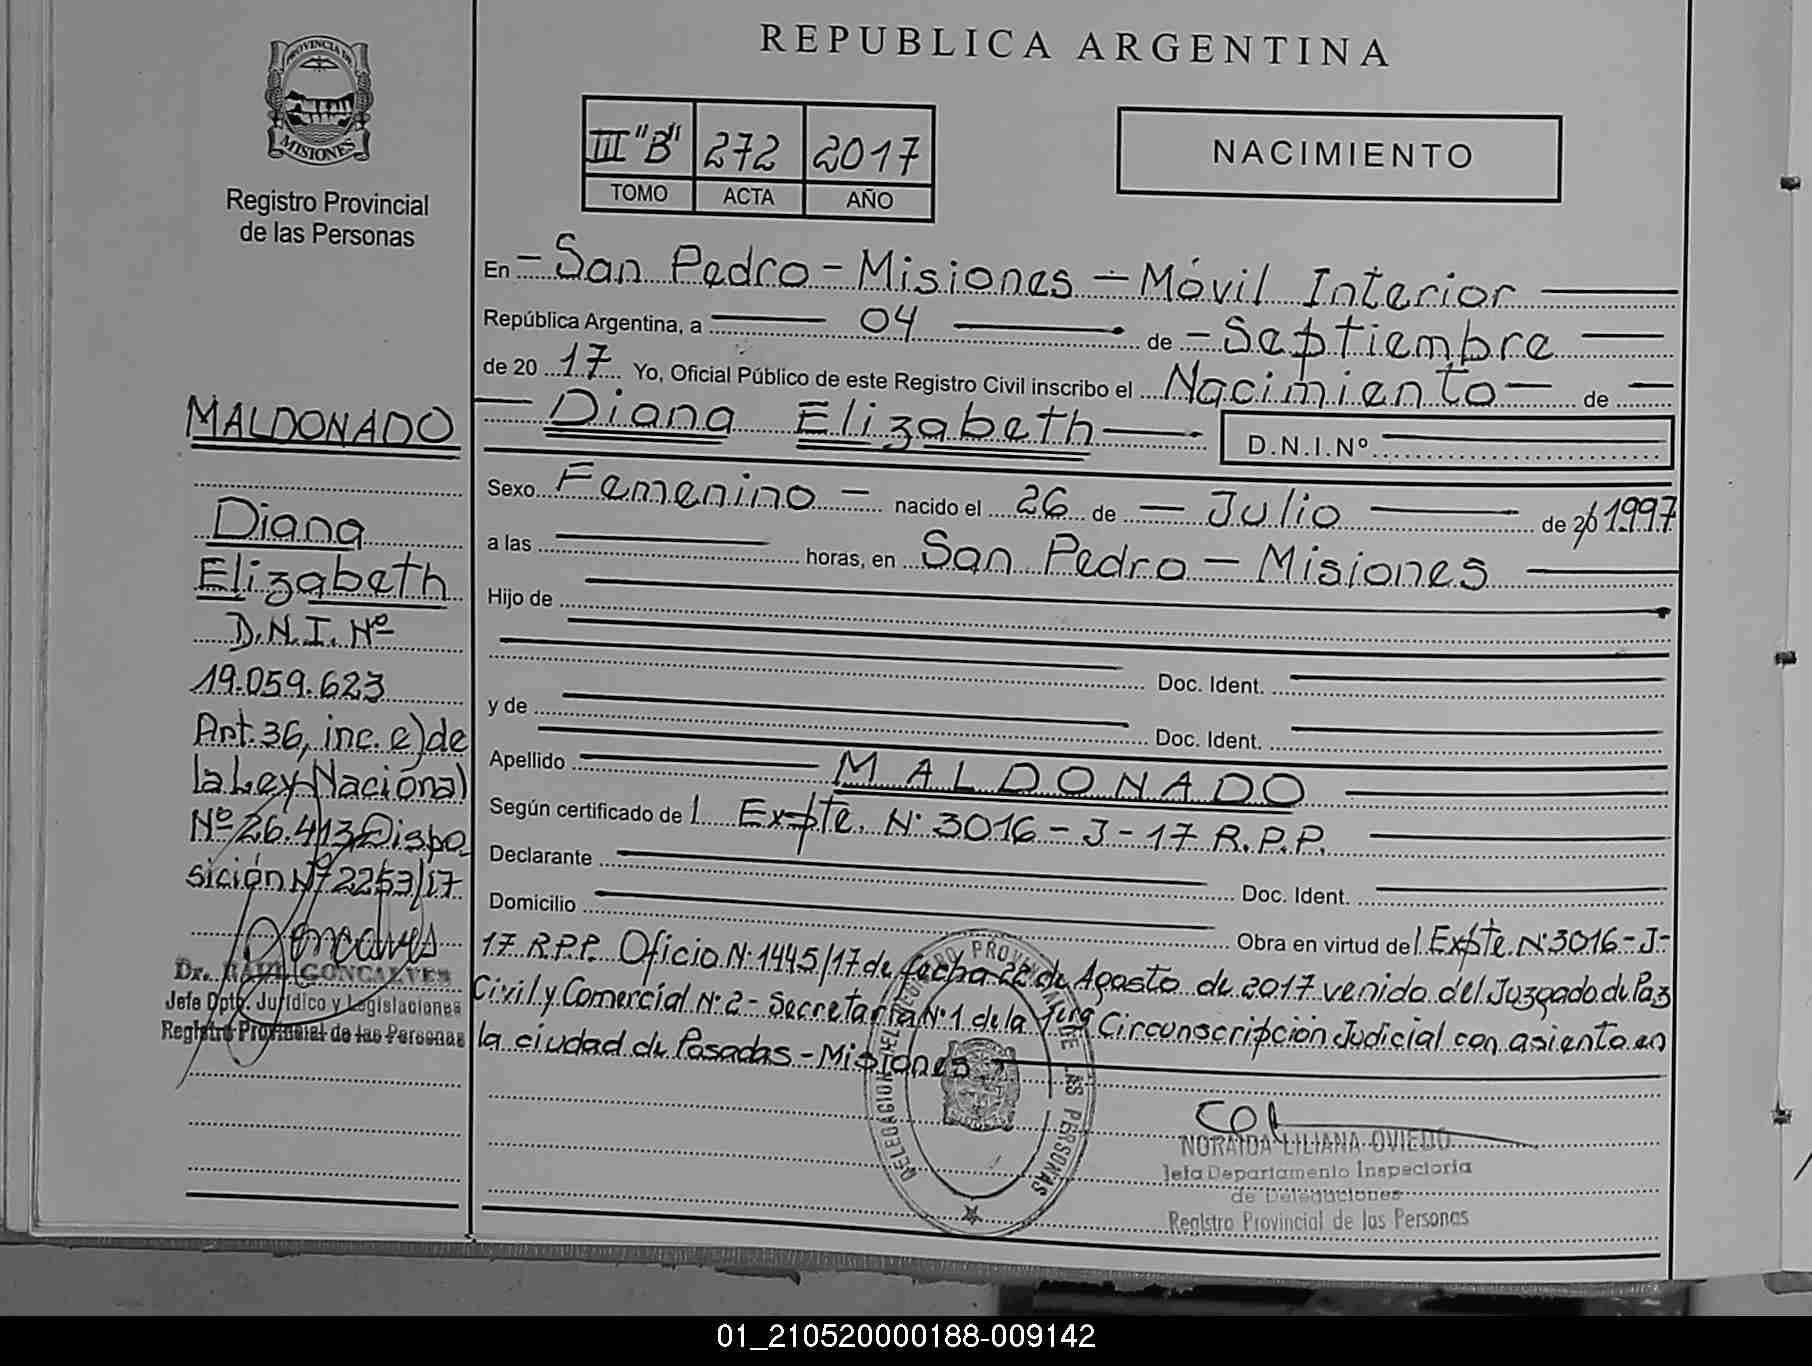 REPUBLICA ARGENTINA
PROVINCIA DE
MISIONES
Registro Provincial
de las Personas
III "B" 272 2017
TOMO ACTA AÑO
NACIMIENTO
En - San Pedro - Misiones - Móvil Interior
República Argentina, a 04 de - Septiembre
de 20 17 Yo, Oficial Público de este Registro Civil inscribo el Nacimiento - de -
Diana Elizabeth D.N.I.Nº
Sexo Femenino - nacido el 26 de - Julio de 20 1997
a las horas, en San Pedro - Misiones
Hijo de
Doc. Ident.
y de
Doc. Ident.
Apellido MALDONADO
Según certificado de l Expte. Nº 3016 - J - 17 R.P.P.
Declarante Doc. Ident.
Domicilio
Obra en virtud de l Expte. Nº 3016 - J -
17 R.P.P. Oficio Nº 1445/17 de fecha 22 de Agosto de 2017 venido del Juzgado de Paz
Civil y Comercial Nº 2 - Secretaría Nº 1 de la 1era Circunscripción Judicial con asiento en
la ciudad de Posadas - Misiones
MALDONADO
Diana
Elizabeth
D.N.I. Nº
19.059.623
Art. 36, inc. e) de
la Ley Nacional
Nº 26.413 Dispo
sición Nº 2253/17
Dr. RAUL GONCALVES
Jefe Dpto. Jurídico y Legislaciones
Registro Provincial de las Personas
NORAIDA LILIANA OVIEDO
Jefa Departamento Inspectoria
de Delegaciones
Registro Provincial de las Personas
01_210520000188-009142